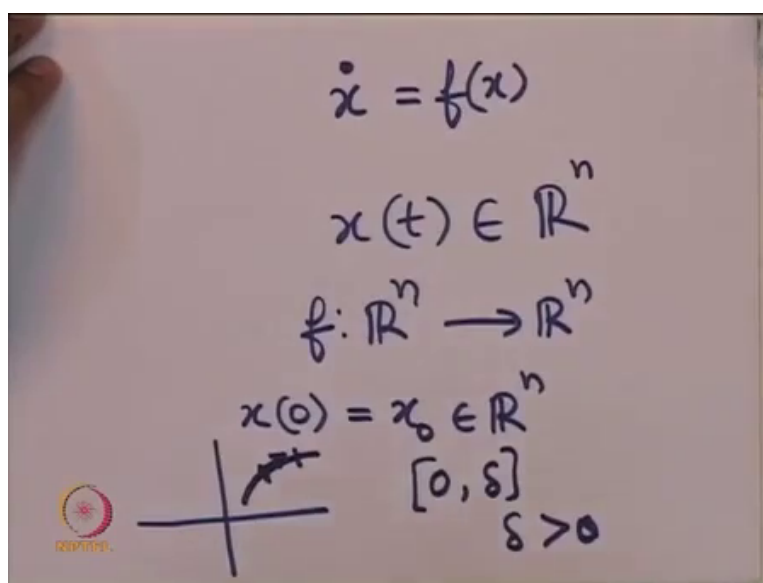 ẋ = f(x)
x(t) ∈ ℝⁿ
f: ℝⁿ ⟶ ℝⁿ
x(0) = x₀ ∈ ℝⁿ
[0, δ]
δ > 0
NPTEL